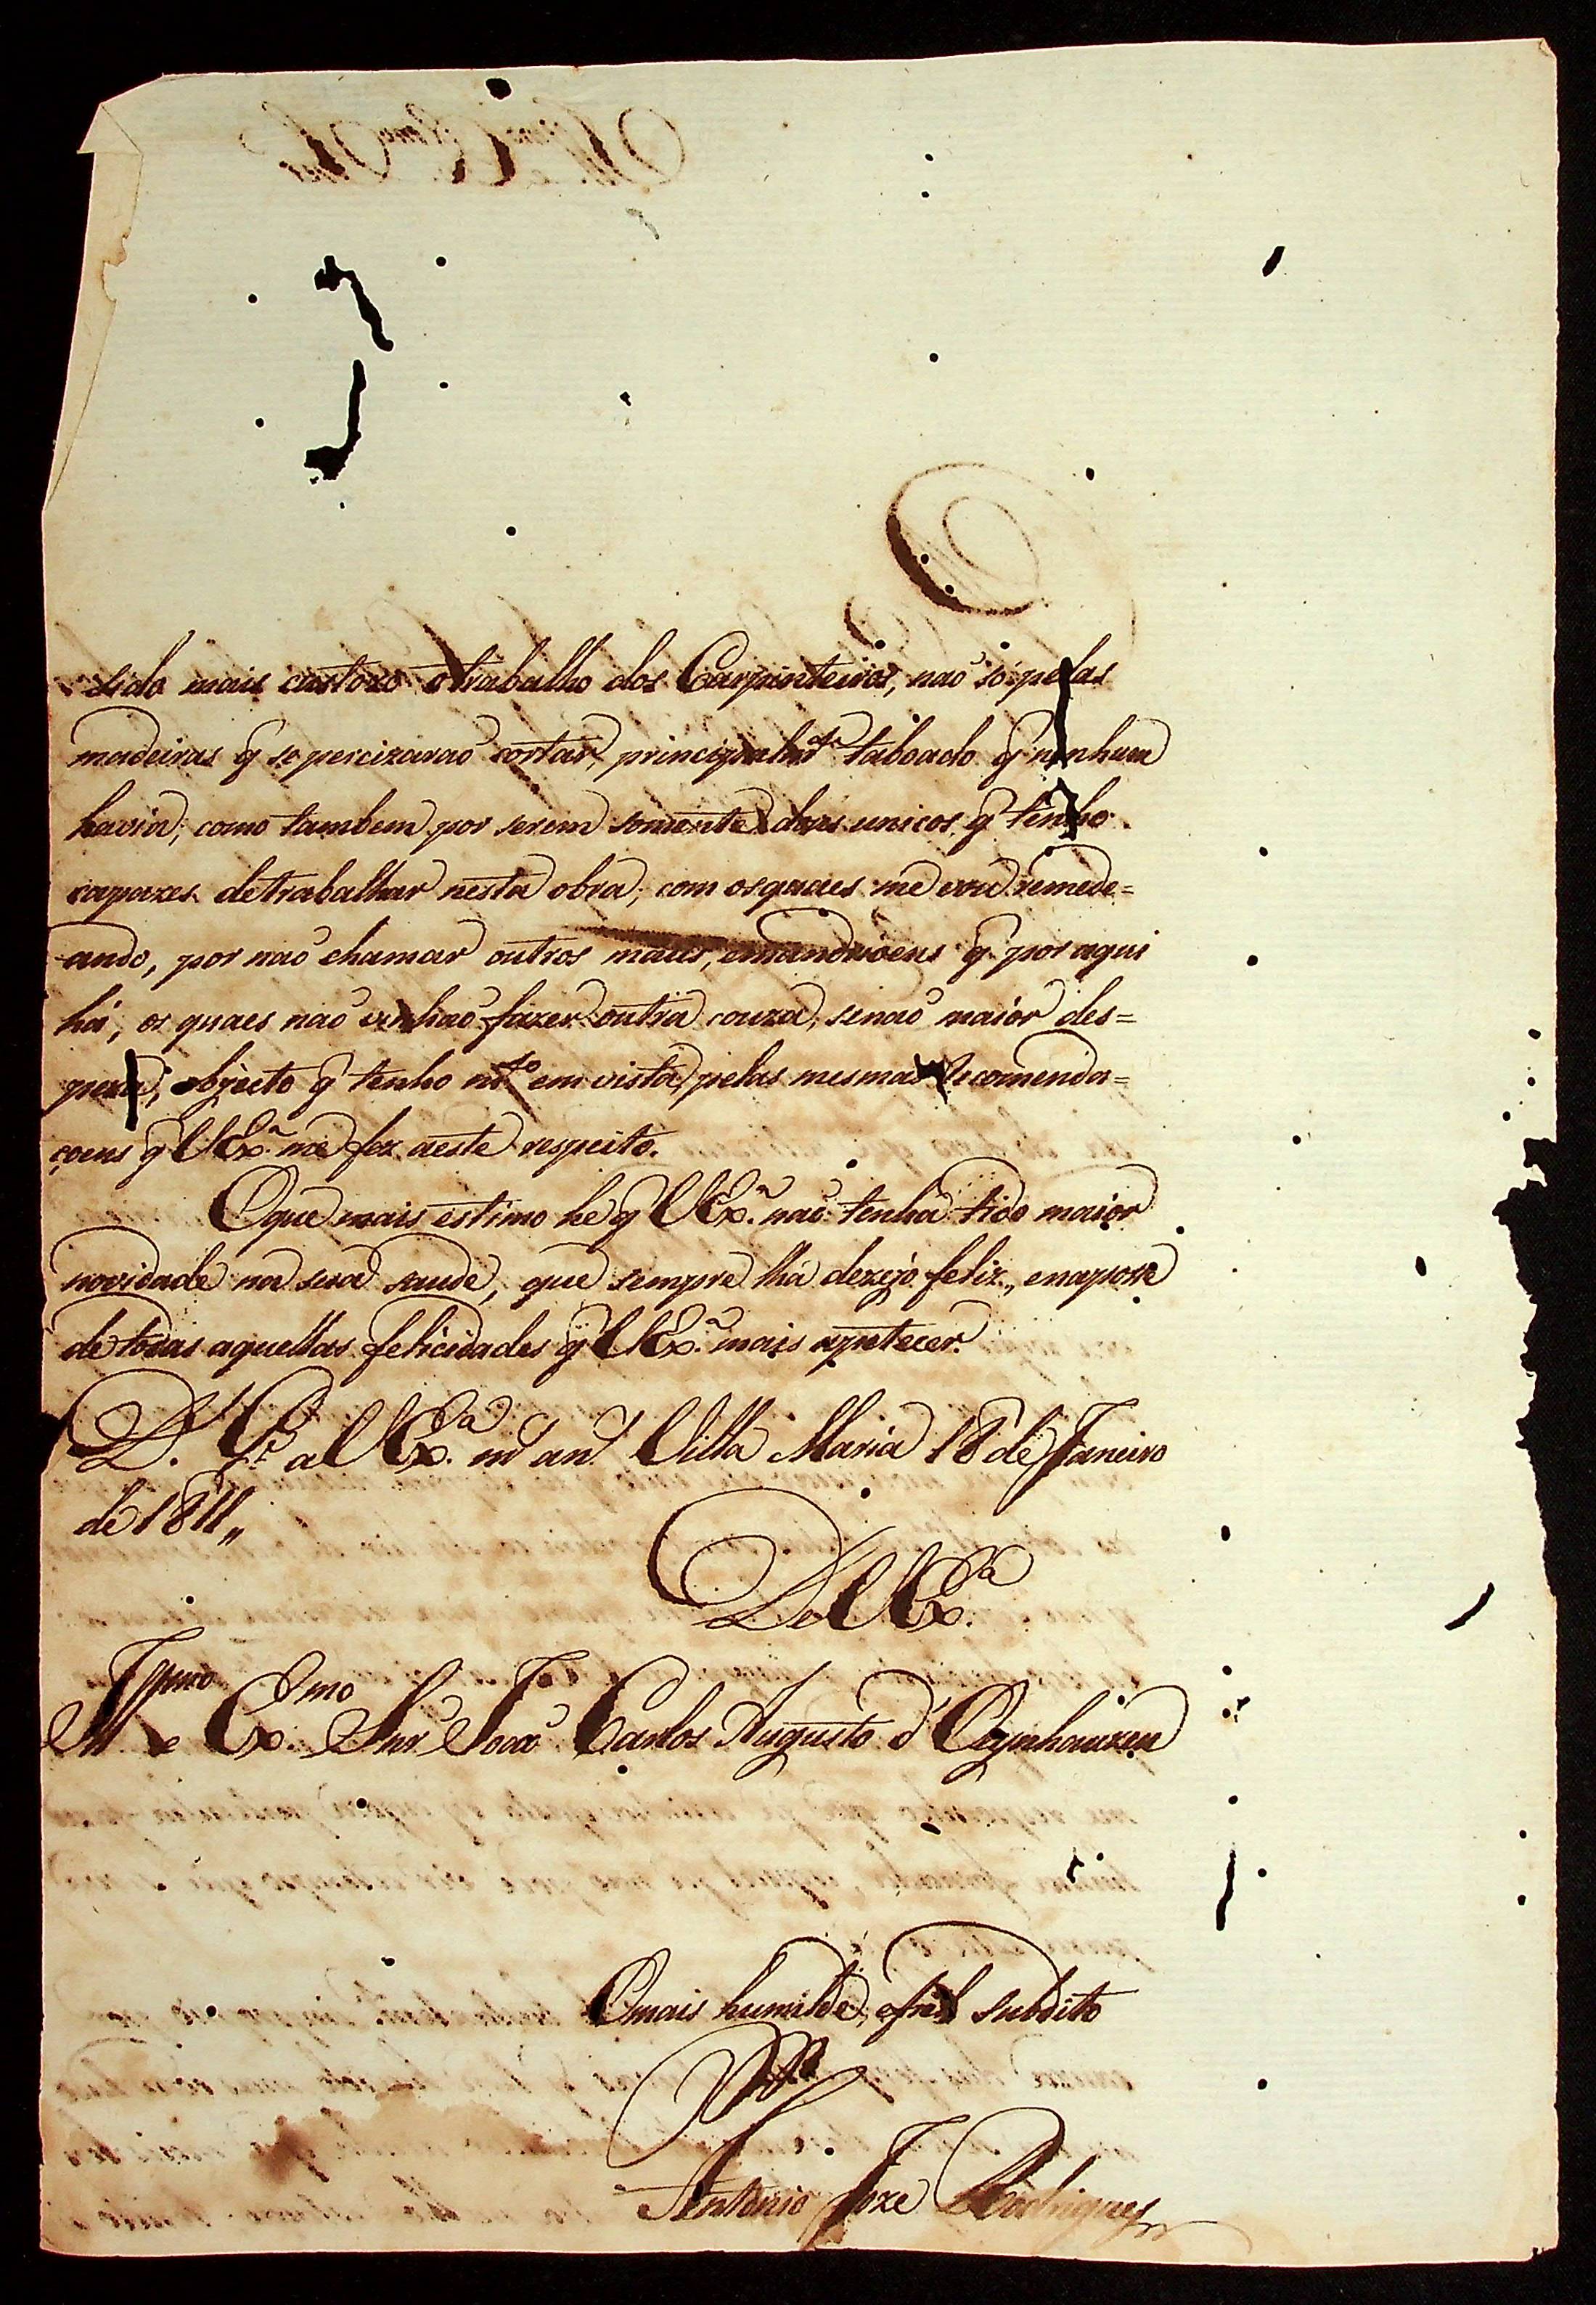 sido mais custozo o trabalho dos Carpinteiros, naõ só pelas
madeiras q̃ se percizaraõ cortar, principalmte. taboado q̃ nenhum
havia; como tambem por serem somente dous unicos q̃ tenho
capazes detrabalhar nesta obra; com osquaes me vou remede=
ando, por naõ chamar outros máus, emandrioens q̃ por aqui
há, os quaes naõ vinhaõ fazer outra couza, senaõ maior des=
peza; objecto q̃ tenho mto. em vista, pelas mesmas Recomenda=
çoens q̃ VExa. me fez aeste respeito.
Oque mais estimo he q̃ VExa. naõ tenha tido maior
novidade na sua saude, que sempre lha dezejo feliz, enaposse
de todas aquellas felicidades q̃ VExa. mais apetecer.
D.s G.e a VExa. ms. ans. Villa Maria 18 de Janeiro
de 1811,,
De VExa.
Illmo. e Exmo. Snr. Joaõ Carlos Augusto d'Oeynhauzen
Omais humilde, efiel subdito
Antonio Joze Rodrigues